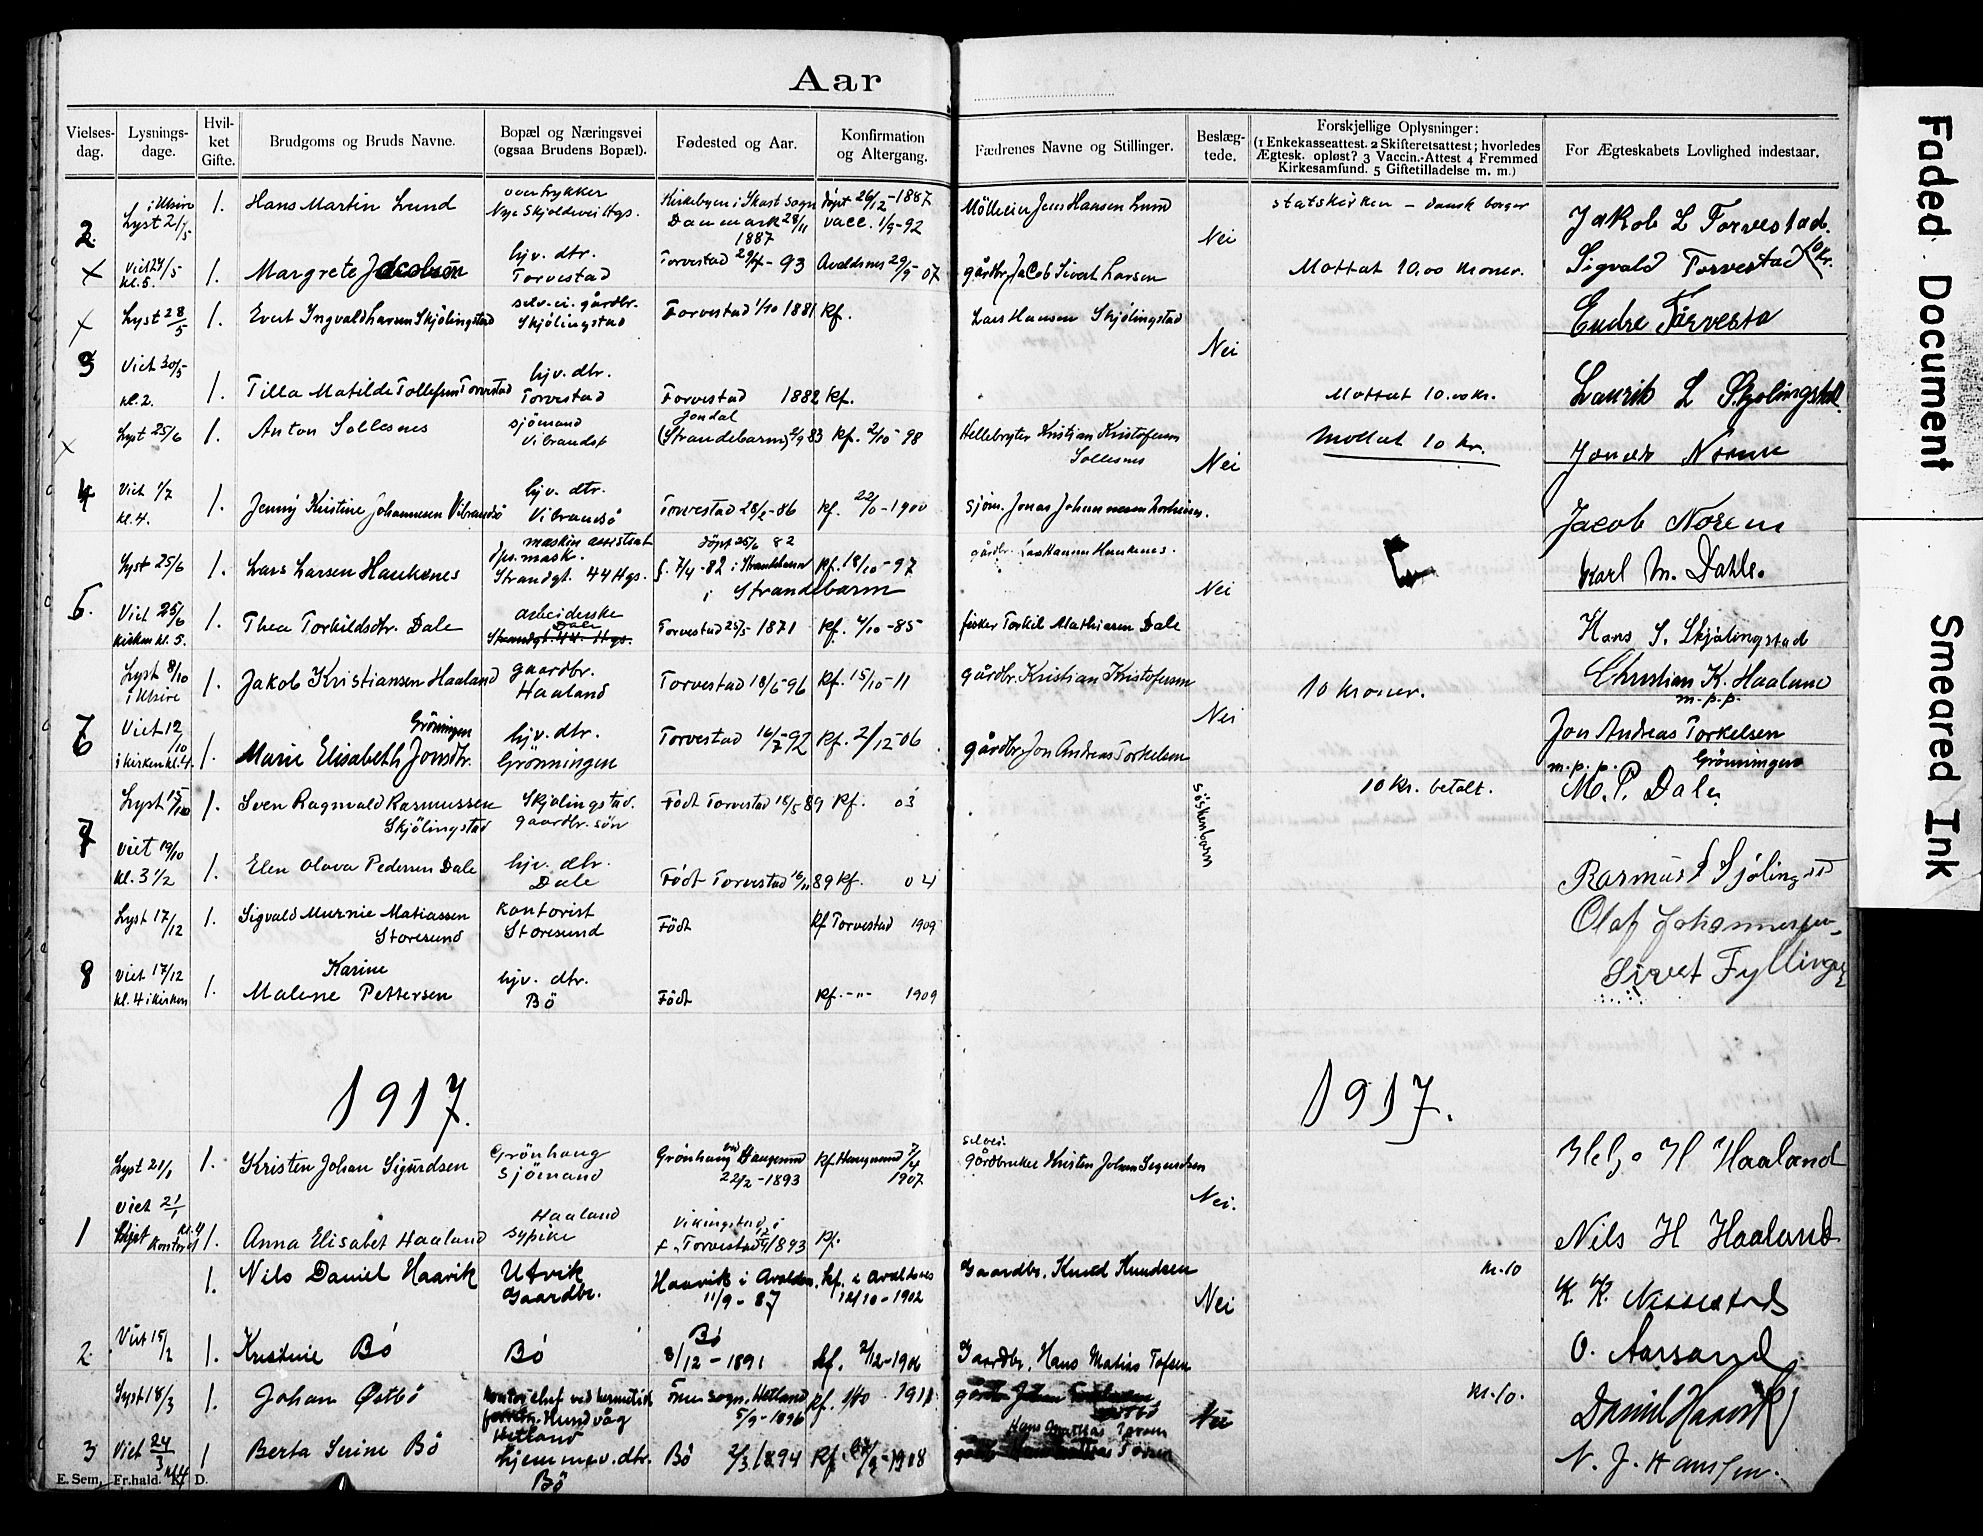 Aar
Vielses-dag.
Lysnings-dage.
Hvil-ket Gifte.
Brudgoms og Bruds Navne.
Bopæl og Næringsvei (ogsaa Brudens Bopæl).
Fødested og Aar.
Konfirmation og Altergang.
Fædrenes Navne og Stillinger.
Beslæg-tede.
Forskjellige Oplysninger: (1 Enkekasseattest. 2 Skifteretsattest; hvorledes Ægtesk. opløst? 3 Vaccin.-Attest 4 Fremmed Kirkesamfund. 5 Giftetilladelse m. m.)
For Ægteskabets Lovlighed indestaar.
2. Lyst 21/5 1. Hans Martin Lund Nye Skjoldavei Hgs. Kirkebyen i Skast sogn Danmark 28/11 1887 døpt 26/12-1887 vacc. 1/9-92 Jens Hansen Lund Nei statskirken - dansk borger Jakob L Torvestad.
x Viet 27/5 kl. 5. 1. Margrete Jacobsen hjv. dtr. Torvestad Torvestad 93 Avaldsnes 29/9 07 gårdbr. Jacob Sivert Larsen Mottat 10,00 kroner. Sigvald Torvestad
x Lyst 28/5 1. Evert Ingvald Larsen Skjølingstad selv.ei. gårdbr. Skjølingstad Torvestad 1/10 1881 kf. Lars Hansen Skjølingstad Nei Endre
3 Viet 30/5 kl. 2. 1. Tilla Matilde Tollefsen Torvestad hjv. dtr. Torvestad Torvestad 1882 kf. Mottat 10.00 kr. Laurits L
x Lyst 25/6 1. Anton Sollesnes sjømand Vibrandsø Jondal (Strandebarm) 2/9 83 kf. 2/10-98 Kristian Kristofersen Sollesnes Nei Mottat 10 kr. Jonas Norum
4 Viet 1/7 kl. 4. 1. Jenny Kristine Johannesen Vibrandsø hjv. dtr. Vibrandsø Torvestad 28/2-86 kf. -1900 sjøm. Jonas Johannesen Jacob
Lyst 25/6 1. Lars Larsen Haukenes maskin assistent Strandgt. 44 Hgs. døpt 25/6 82 f. 7/4-82 i Strandebarm kf. 18/10-97 i Strandebarm gårdbr. Lars Hansen Haukenes. Nei Karl M. Dahle.
5. Viet 25/6 kirken kl. 5. 1. Thea Torkildsdtr. Dale arbeiderske Dale Strandgt. 44 Hgs. Torvestad 25/5 1871 kf. 4/10-85 fisker Torkil Mathiasen Dale Hans S. Skjølingstad
Lyst 8/10 i Utsire 1. Jakob Kristiansen Haaland gaardbr. Haaland Torvestad 18/6-96 kf. 15/10-11 gårdbr. Kristian Kristofersen Nei 10 kroner. Christian K. Haaland m.p.p.
6 Viet 12/10 i kirken kl. 4. 1. Marie Elisabeth Jonsdtr. Grönningen hjv. dtr. Grönningen Torvestad 16/7-92 kf. 2/12-06 gårdbr. Jon Andreas Torkelsen Jon Andreas Torkelsen m.p.p. Grönningen
Lyst 15/10 1. Sven Ragnvald Rasmussen Skjölingstad Skjölingstad. gaardbr. sön Födt Torvestad 18/5 89 kf. 03 söskenbarn 10 kr. betalt. M. P. Dale
7 Viet 19/10 kl. 3 1/2 1. Elen Olava Pedersen Dale hjv. dtr. Dale Födt Torvestad 16/11 89 kf. 04 Rasmus
Lyst 17/12 1. Sigvald Murnie Matiassen Storesund kontorist Storesund Födt kf Torvestad 1909 Olaf Johannessen
8 Viet 17/12 kl. 4 i kirken 1. Karine Malene Pettersen hjv. dtr. Bö Födt kf. -"- 1909 Sivert Fyllingen
1917.
1917.
Lyst 21/1 1. Kristen Johan Sigurdsen Grönhaug Sjömand Grönhaug ved Haugesund 22/2-1893 kf Haugesund 7/4 1907 selvei. gårdbruker Kristen Johan Sigurdsen Nei. Helge H Haaland
1 Viet 21/1 kl. 4 kontoret 1. Anna Elisabet Haaland Haaland sypike Vikingstad i f. Torvestad 1893 kf. Nils H Haaland
1. Nils Daniel Haavik Utvik Gaardbr. Haavik i Avaldsn. 11/9-87 kf. i Avaldsnes 12/10-1902 Gaardbr. Knud Knudsen Nei kr. 10 K. K. Nessestad
2. Viet 15/2 1. Kristine Bö Bö Bö 8/12-1891 kf. 2/12-1906 Gaardbr. Hans Matias Tofsen O. Aarsand
Lyst 18/3 1. Johan Østbö Hundvåg Hetland Frue sogn, Hetland 5/9-1896 kf. 1911 Nei kr. 10. Daniel Haavik
3 Viet 24/3 kl 4 1 Berta Serine Bö hjemmev. dtr. Bö Bö 2/3 1894 kf. 1908 Hans Mathias N. J. Hansen.
E. Sem, Fr.hald. K. D.
Faded Document
Smeared Ink